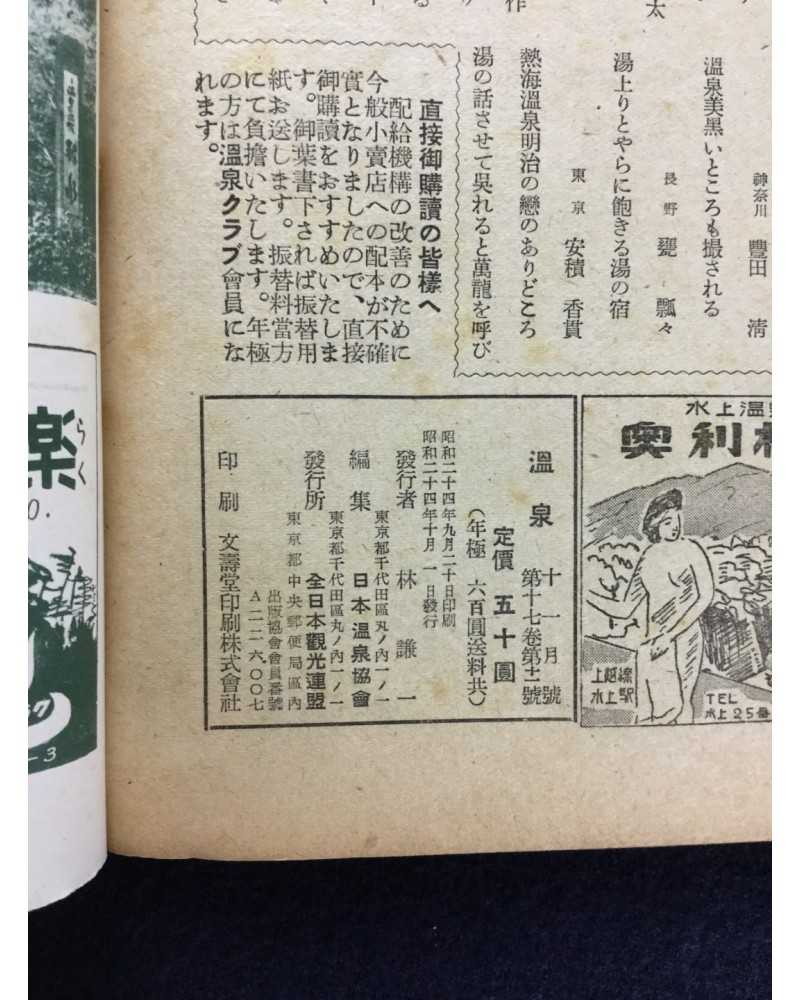 太
作
神奈川 豐田 淸
溫泉美黑いところも撮される
長野 甕 瓢々
湯上りとやらに飽きる湯の宿
東京 安積 香貫
熱海溫泉明治の戀のありどころ
湯の話させて吳れると萬龍を呼び
直接御購讀の皆樣へ
配給機構の改善のために
今般小賣店への配本が不確
實となりましたので、直接
御購讀をおすすめいたしま
す。御葉書下されば振替用
紙お送します。振替料當方
にて負擔いたします。年極
の方は溫泉クラブ會員にな
れます。
水上溫
奥利
上越線
水上駅
TEL
水上25番
溫泉 十一月號
第十七卷第十一號
定價 五十圓
(年極 六百圓送料共)
昭和二十四年九月二十日印刷
昭和二十四年十月一日發行
發行者 林 謙一
東京都千代田區丸ノ內一ノ一
編集 日本溫泉協會
東京都千代田區丸ノ內一ノ一
發行所 全日本觀光連盟
東京都中央郵便局區內
出版協會會員番號
A二二六〇〇七
印刷 文壽堂印刷株式會社
楽
らく
0.
-3